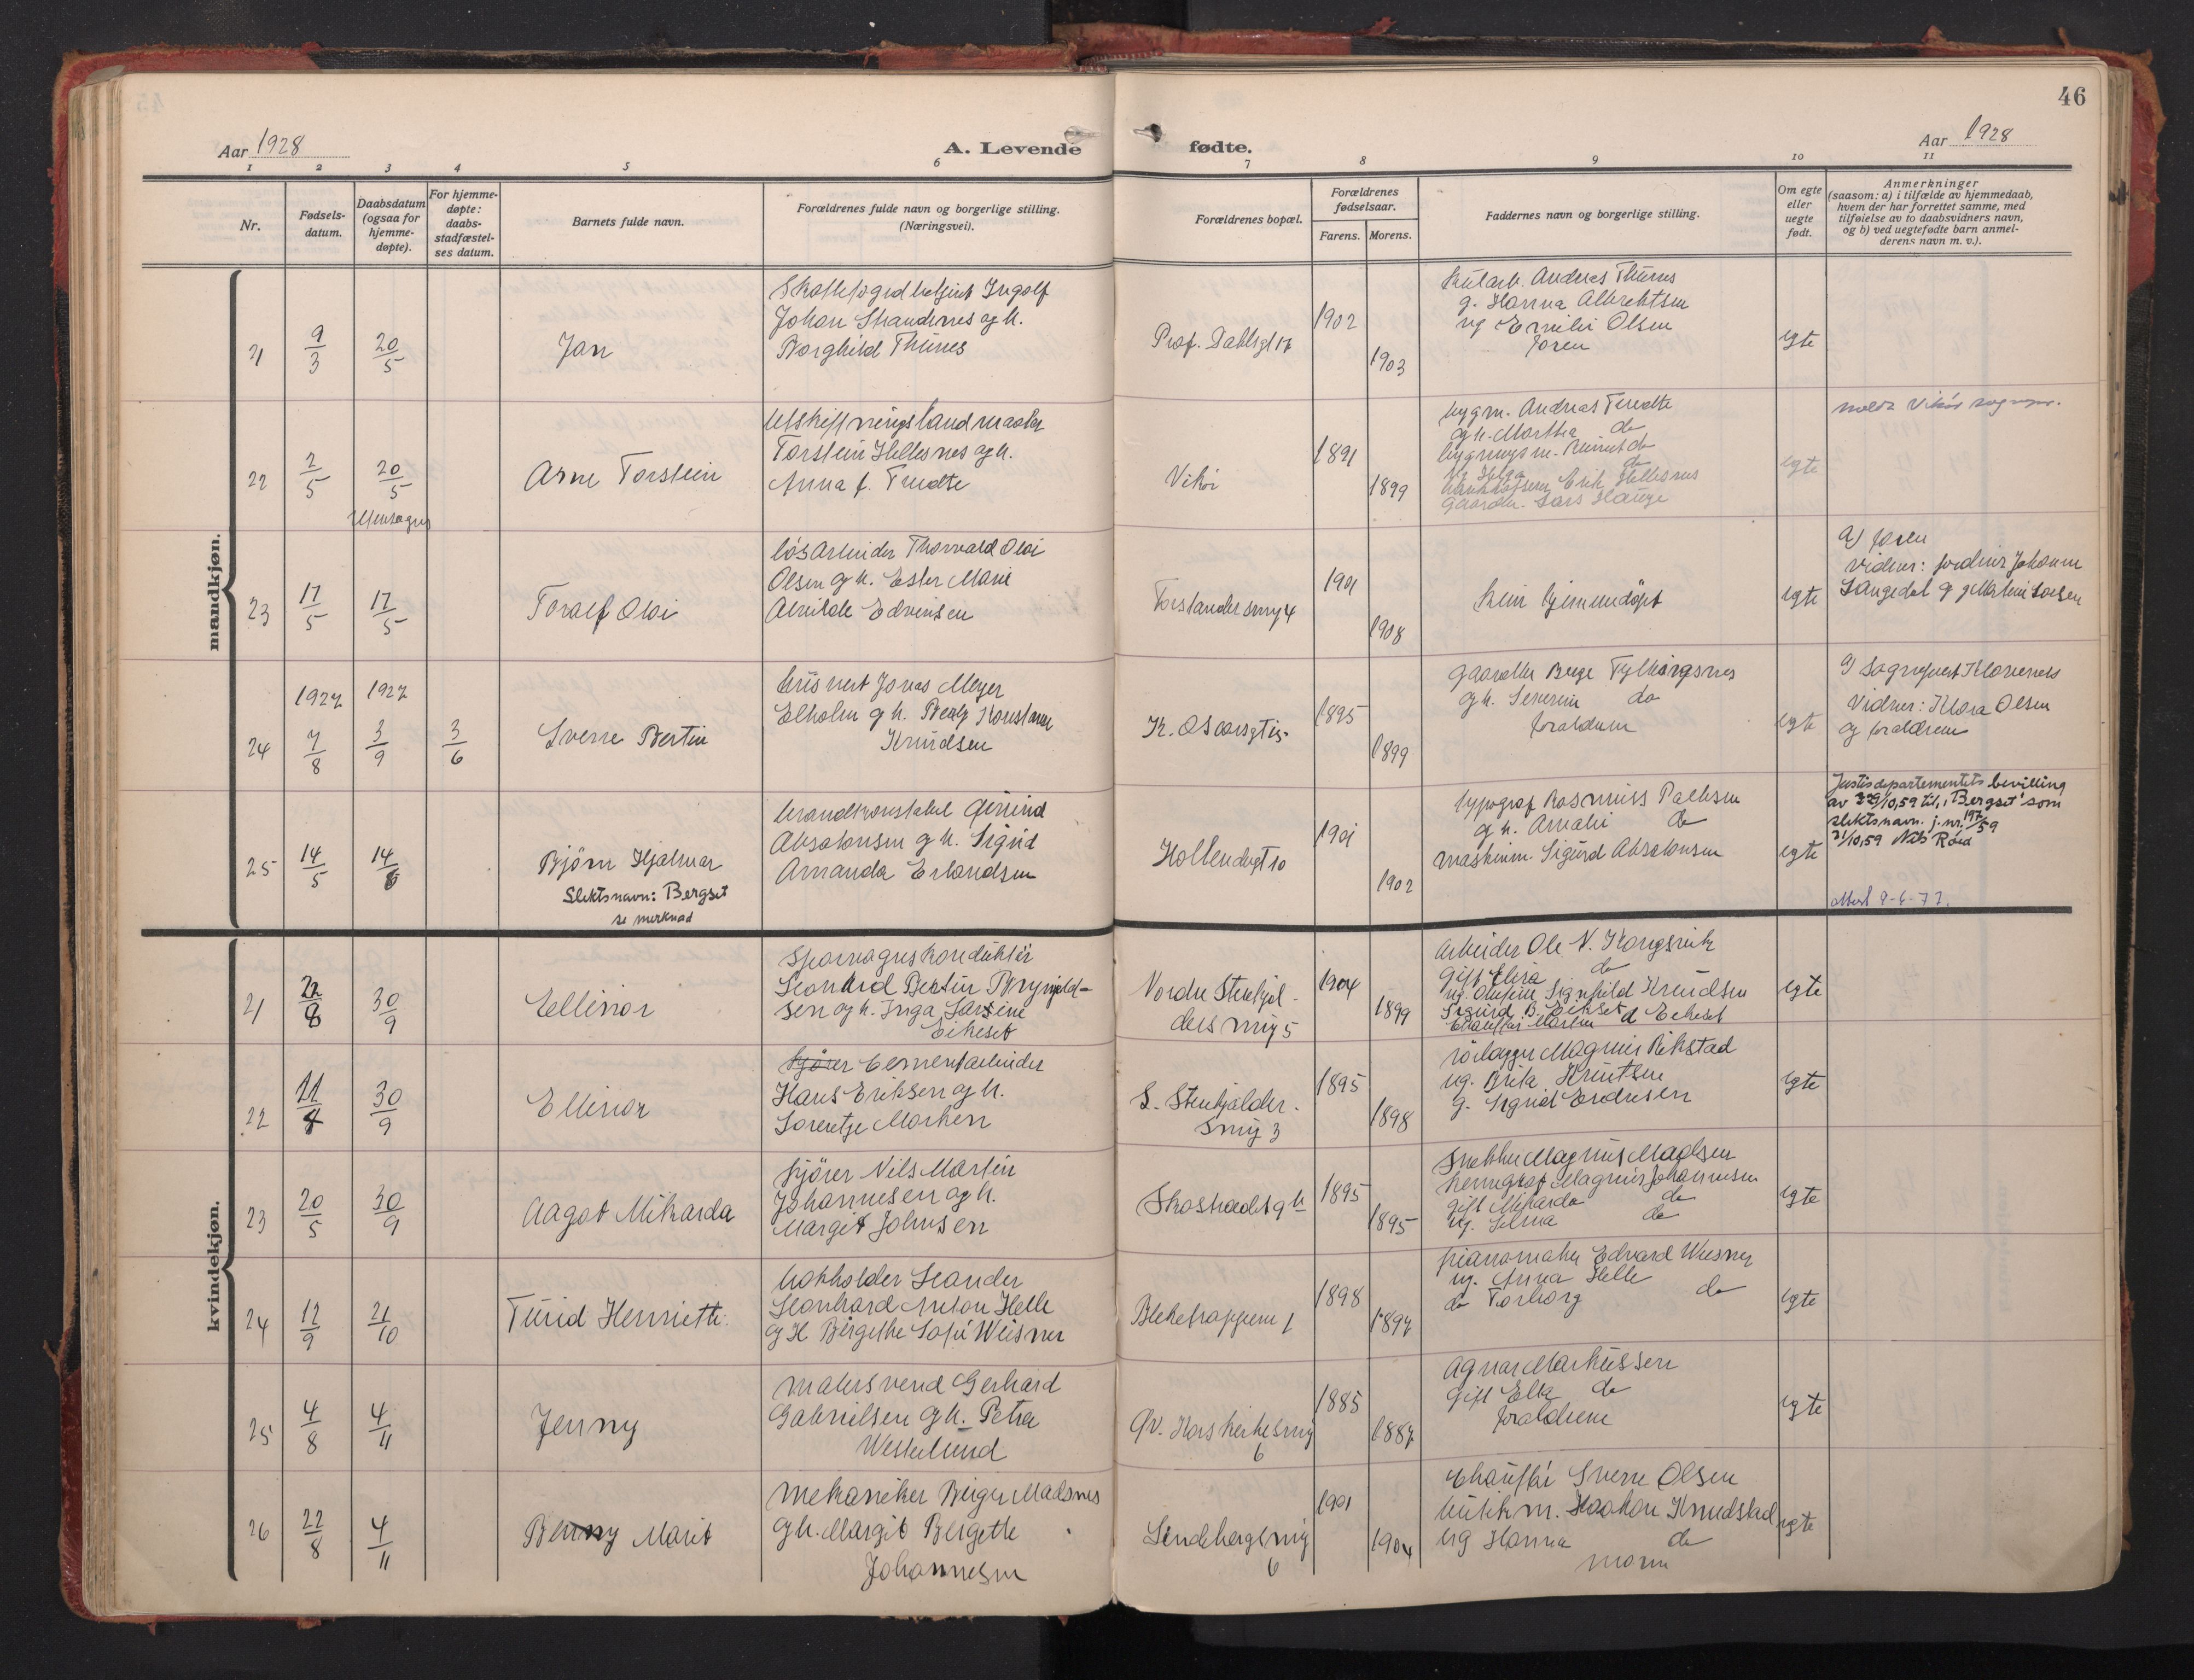 46
Aar 1928
A. Levende
fødte.
Aar 1928
1 2 3 4 5 6 7 8 9 10 11
Nr.
Fødsels-
datum.
Daabsdatum
(ogsaa for
hjemme-
døpte).
For hjemme-
døpte:
daabs-
stadfæstel-
ses datum.
Barnets fulde navn.
Forældrenes fulde navn og borgerlige stilling.
(Næringsvei).
Forældrenes bopæl.
Forældrenes
fødselsaar.
Farens. Morens.
Faddernes navn og borgerlige stilling.
Om egte
eller
uegte
født.
Anmerkninger
(saasom: a) i tilfælde av hjemmedaab,
hvem der har forrettet samme, med
tilføielse av to daabsvidners navn,
og b) ved uegtefødte barn anmel-
derens navn m. v.).
mandkjøn.
21
9/3
20/5
Jan
Ingolf
Johan Strandenes og h.
Borghild Thunes
Prof. Dahlsgt 17
1902
1903
Andreas Thunes
g. Hanna Albrektsen
ug Emilie Olsen
faren
egte
22
2/5
20/5
Arne Torstein
Utskiftningslandmaaler
Torstein Hellesnes og h.
Anna f. Tvedte
Vikør
1891
1899
bygm. Andreas Tvedte
og h. Martha do
ug Helga do
Erik Hellesnes
Lars Hauge
egte
23
17/5
17/5
Toralf Olai
løsarbeider Thorvald Olai
Olsen og h. Ester Marie
Alvilde Edvinsen
Forstandersmug 4
1901
1908
hjemmedøpt
egte
a) faren
Vidner: Johanne
Langedal og
24
1927
7/8
1927
3/9
3/6
Sverre Bertin
Jonas Meyer
Elholm og h.
Knudsen
K. Oscarsgt
1895
1899
Berge
og h. Severine do
forældrene
egte
a) Sogneprest Klaveness
Vidner: Klara Olsen
og forældrene
25
14/5
14/6
Bjørn Hjalmar
Slektsnavn: Bergset
se merknad
brandkonstabel Eivind
Absalonsen og h. Sigrid
Amanda Erlandsen
Hollendergt 10
1901
1902
typograf Rasmus Paulsen
g h. Amalie do
maskinm. Sigurd Absalonsen
egte
Justisdepartementets bevilling
av 29/10,59 til "Bergset" som
slektsnavn. j.nr. 197/59
31/10,59 Nils Røed
attest 9-6-72.
kvindekjøn.
21
22/8
30/9
Ellinor
Sporvognskonduktør
Leonhard Bertin Brynjeld-
sen og h. Inga Larsine
Eikeset
Nordre Stenkjel-
dersmug 5
1904
1899
arbeider Ole N. Kongsvik
gift Elisa do
ug. Olufine Signhild Knudsen
Sigurd B. Eikset
egte
22
21/8
30/9
Ellinor
kjører Cementarbeider
Hans Eriksen og h.
Lorentze Marken
S. Stenkjelder-
smug 3
1895
1898
rørlægger Magnus Rikstad
ug. Brita Knutsen
g. Sigrid Endresen
egte
23
20/5
30/9
Aagot Mikarda
kjører Nils Martin
Johannesen og h.
Margit Johnsen
1895
1895
Snekker Magnus Madsen
Magnus Johannesen
gift Mikarda do
ug. Selma do
egte
24
12/9
21/10
Turid Henriette
bokholder Leander
Leonhard Anton Helle
og H Birgithe Sofie Wiesner
Bleketrappene 1
1898
1897
pianomaker Edvard Wiesner
ug. Anna Helle
do Torborg do
egte
25
4/8
4/11
Jenny
malersvend Gerhard
Gabrielsen og h. Petra
Westerlund
Øv. Korskirkesmug
6
1885
1887
Agnar Markussen
gift Ella do
forældrene
egte
26
22/8
4/11
Benny Marit
mekaniker Birger Madsnes
og h. Margit Bergette
Johannesen
Lindebergsmug
6
1901
1904
Chauffør Sverre Olsen
butikm. Haakon Knudstad
ug Hanna do
moren
egte